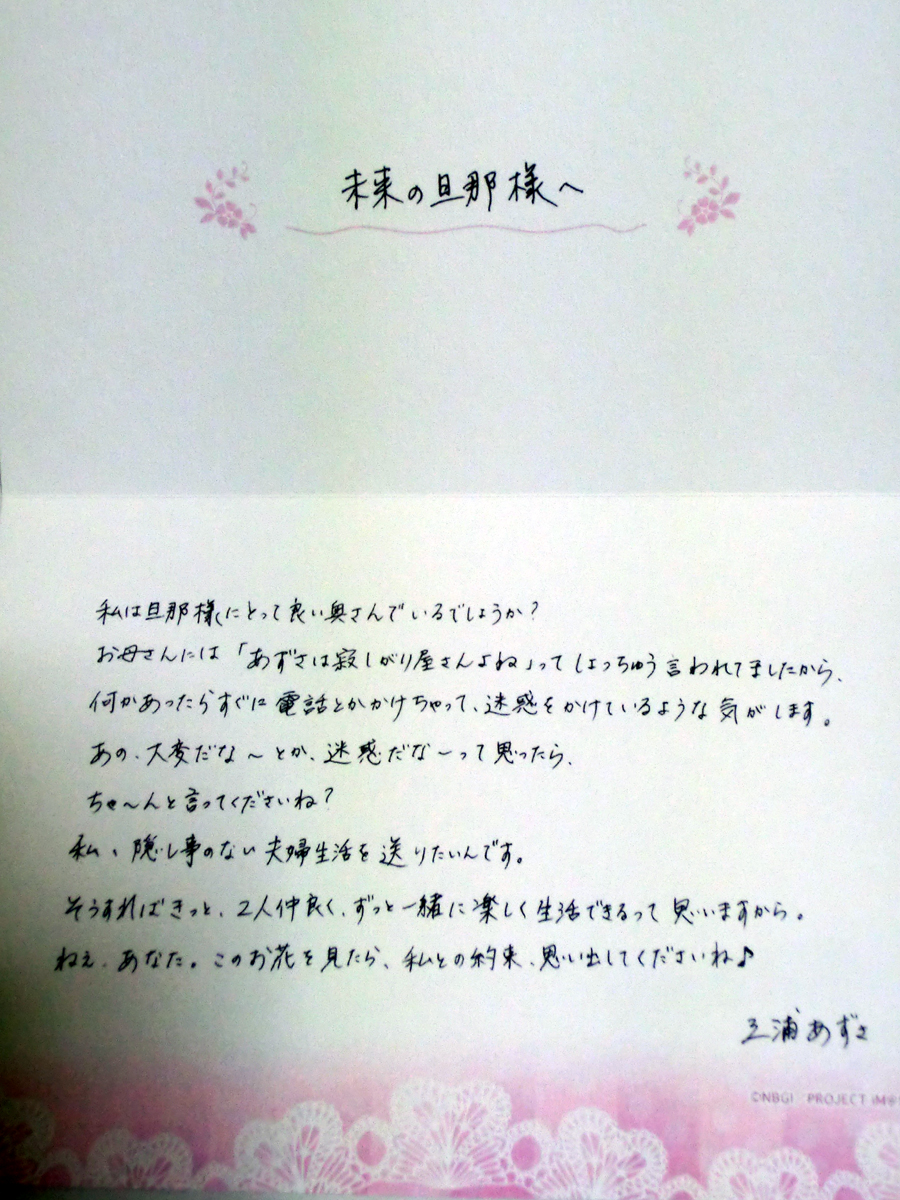 未来の旦那様へ
私は旦那様にとって良い奥さんでいるでしょうか?
お母さんには「あずさは寂しがり屋さんよね」ってしょっちゅう言われてましたから、
何かあったらすぐに電話とかかけちゃって、迷惑をかけているような気がします。
あの、大変だな～とか、迷惑だな～って思ったら、
ちゃ～んと言ってくださいね?
私、隠し事のない夫婦生活を送りたいんです。
そうすればきっと、2人仲良く、ずっと一緒に楽しく生活できるって思いますから。
ねぇ、あなた。このお花を見たら、私との約束、思い出してくださいね♪
三浦あずさ
©NBGI PROJECT iM@